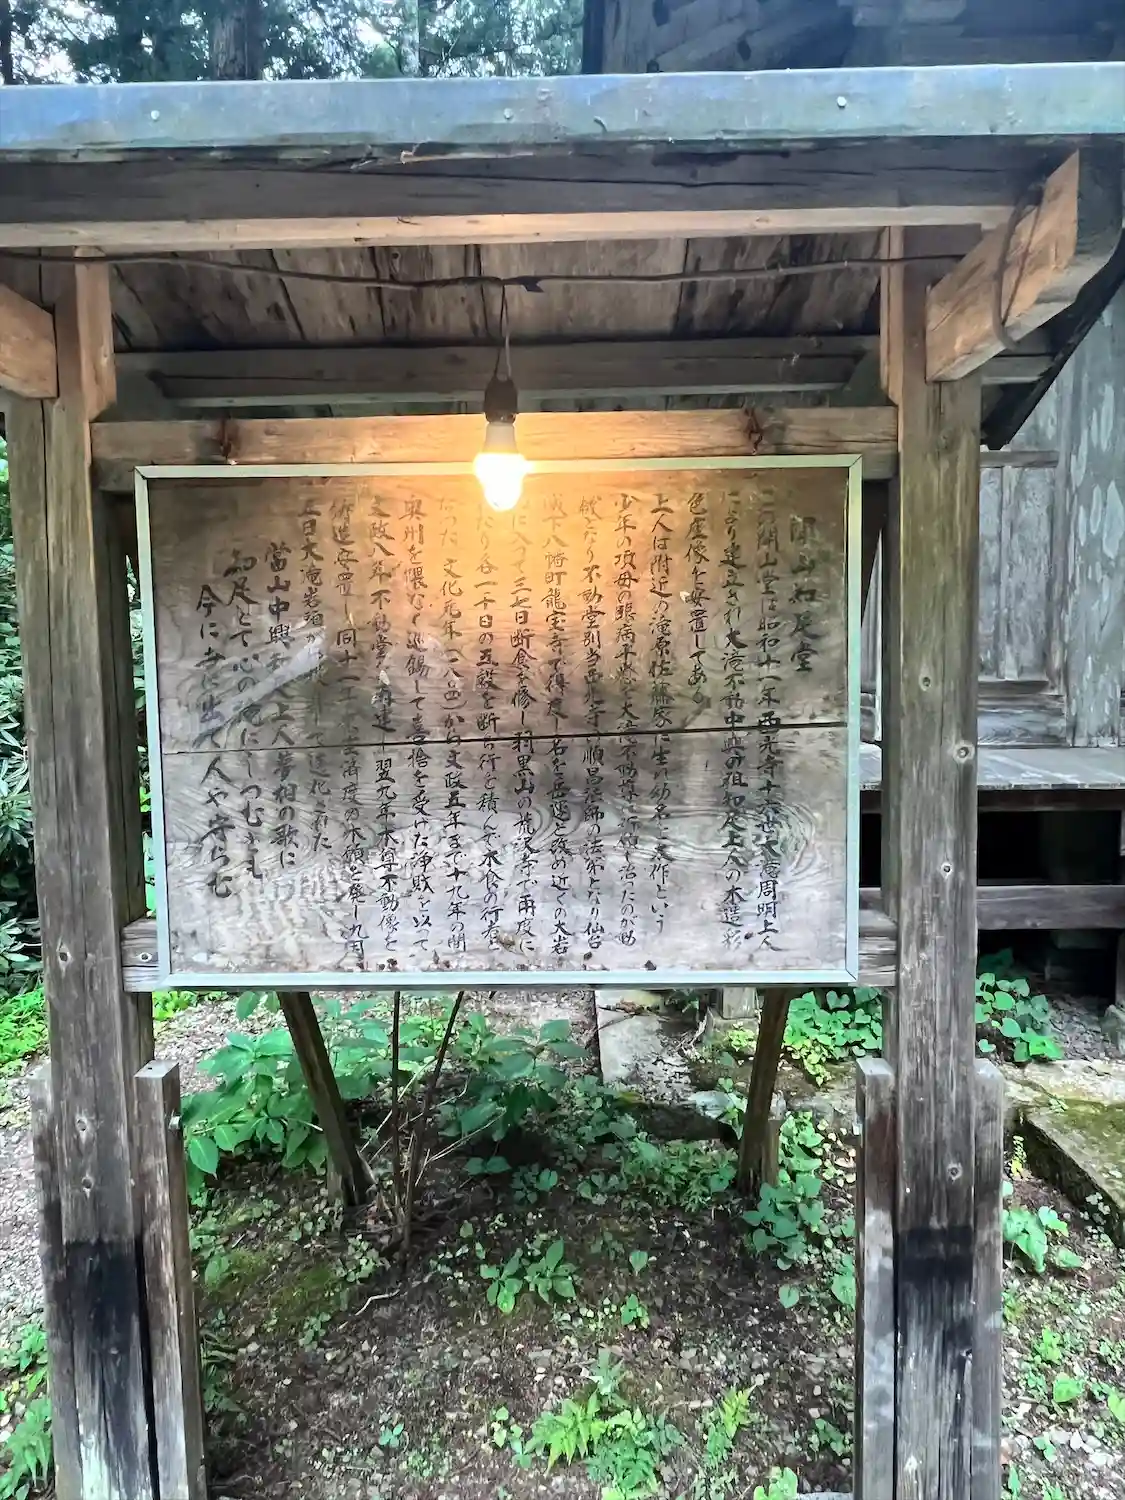 開山知足堂
この開山堂は昭和十一年西光寺十六世大滝周明上人
により建立され大滝不動中興の祖知足上人の木造彩
色座像を安置してある
上人は附近の滝原佐藤家に生れ幼名を文作という
少年の頃母の眼病平癒を大滝不動尊に祈願し治ったのが動
機となり不動堂別当西光寺の順昌法師の法弟となり仙台
城下八幡町龍宝寺で得度し名を と改め近くの大岩
に入って三七日断食を修し羽黒山の荒沢寺で両度に
わたり各一千日の五穀を断ち行を積んで木食の行者に
なった 文化元年(一八〇四)から文政五年まで十九年の間
奥州を隈なく巡錫して喜捨を受けた浄財を以て
文政八年不動堂を再建し翌九年本尊不動像を
鋳造安置し同十一年 済度の大願を発し九月
五日大滝岩 遷化された
當山中興知足上人夢想の歌に
知足とて心の滝にうつむとも
今に寺に出て人や守らむ